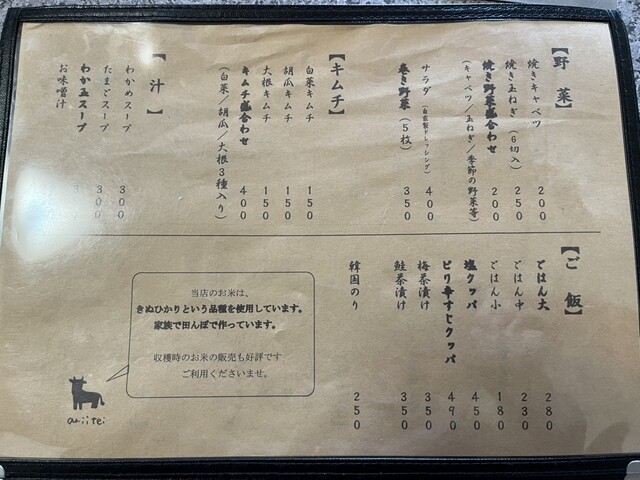 【野菜】
焼きキャベツ 200
焼き玉ねぎ(6切入) 250
焼き野菜盛合わせ 200
(キャベツ/玉ねぎ/季節の野菜等)
サラダ(自家製ドレッシング) 400
巻き野菜(5枚) 350
【キムチ】
白菜キムチ 150
胡瓜キムチ 150
大根キムチ 150
キムチ盛合わせ 400
(白菜/胡瓜/大根3種入り)
【汁】
わかめスープ 300
たまごスープ 300
わか玉スープ
お味噌汁
【ご飯】
ごはん大 280
ごはん中 230
ごはん小 180
塩クッパ 450
ピリ辛すじクッパ 490
梅茶漬け 350
鮭茶漬け 350
韓国のり 250
当店のお米は、
きぬひかりという品種を使用しています。
家族で田んぼで作っています。
収穫時のお米の販売も好評です
ご利用くださいませ。